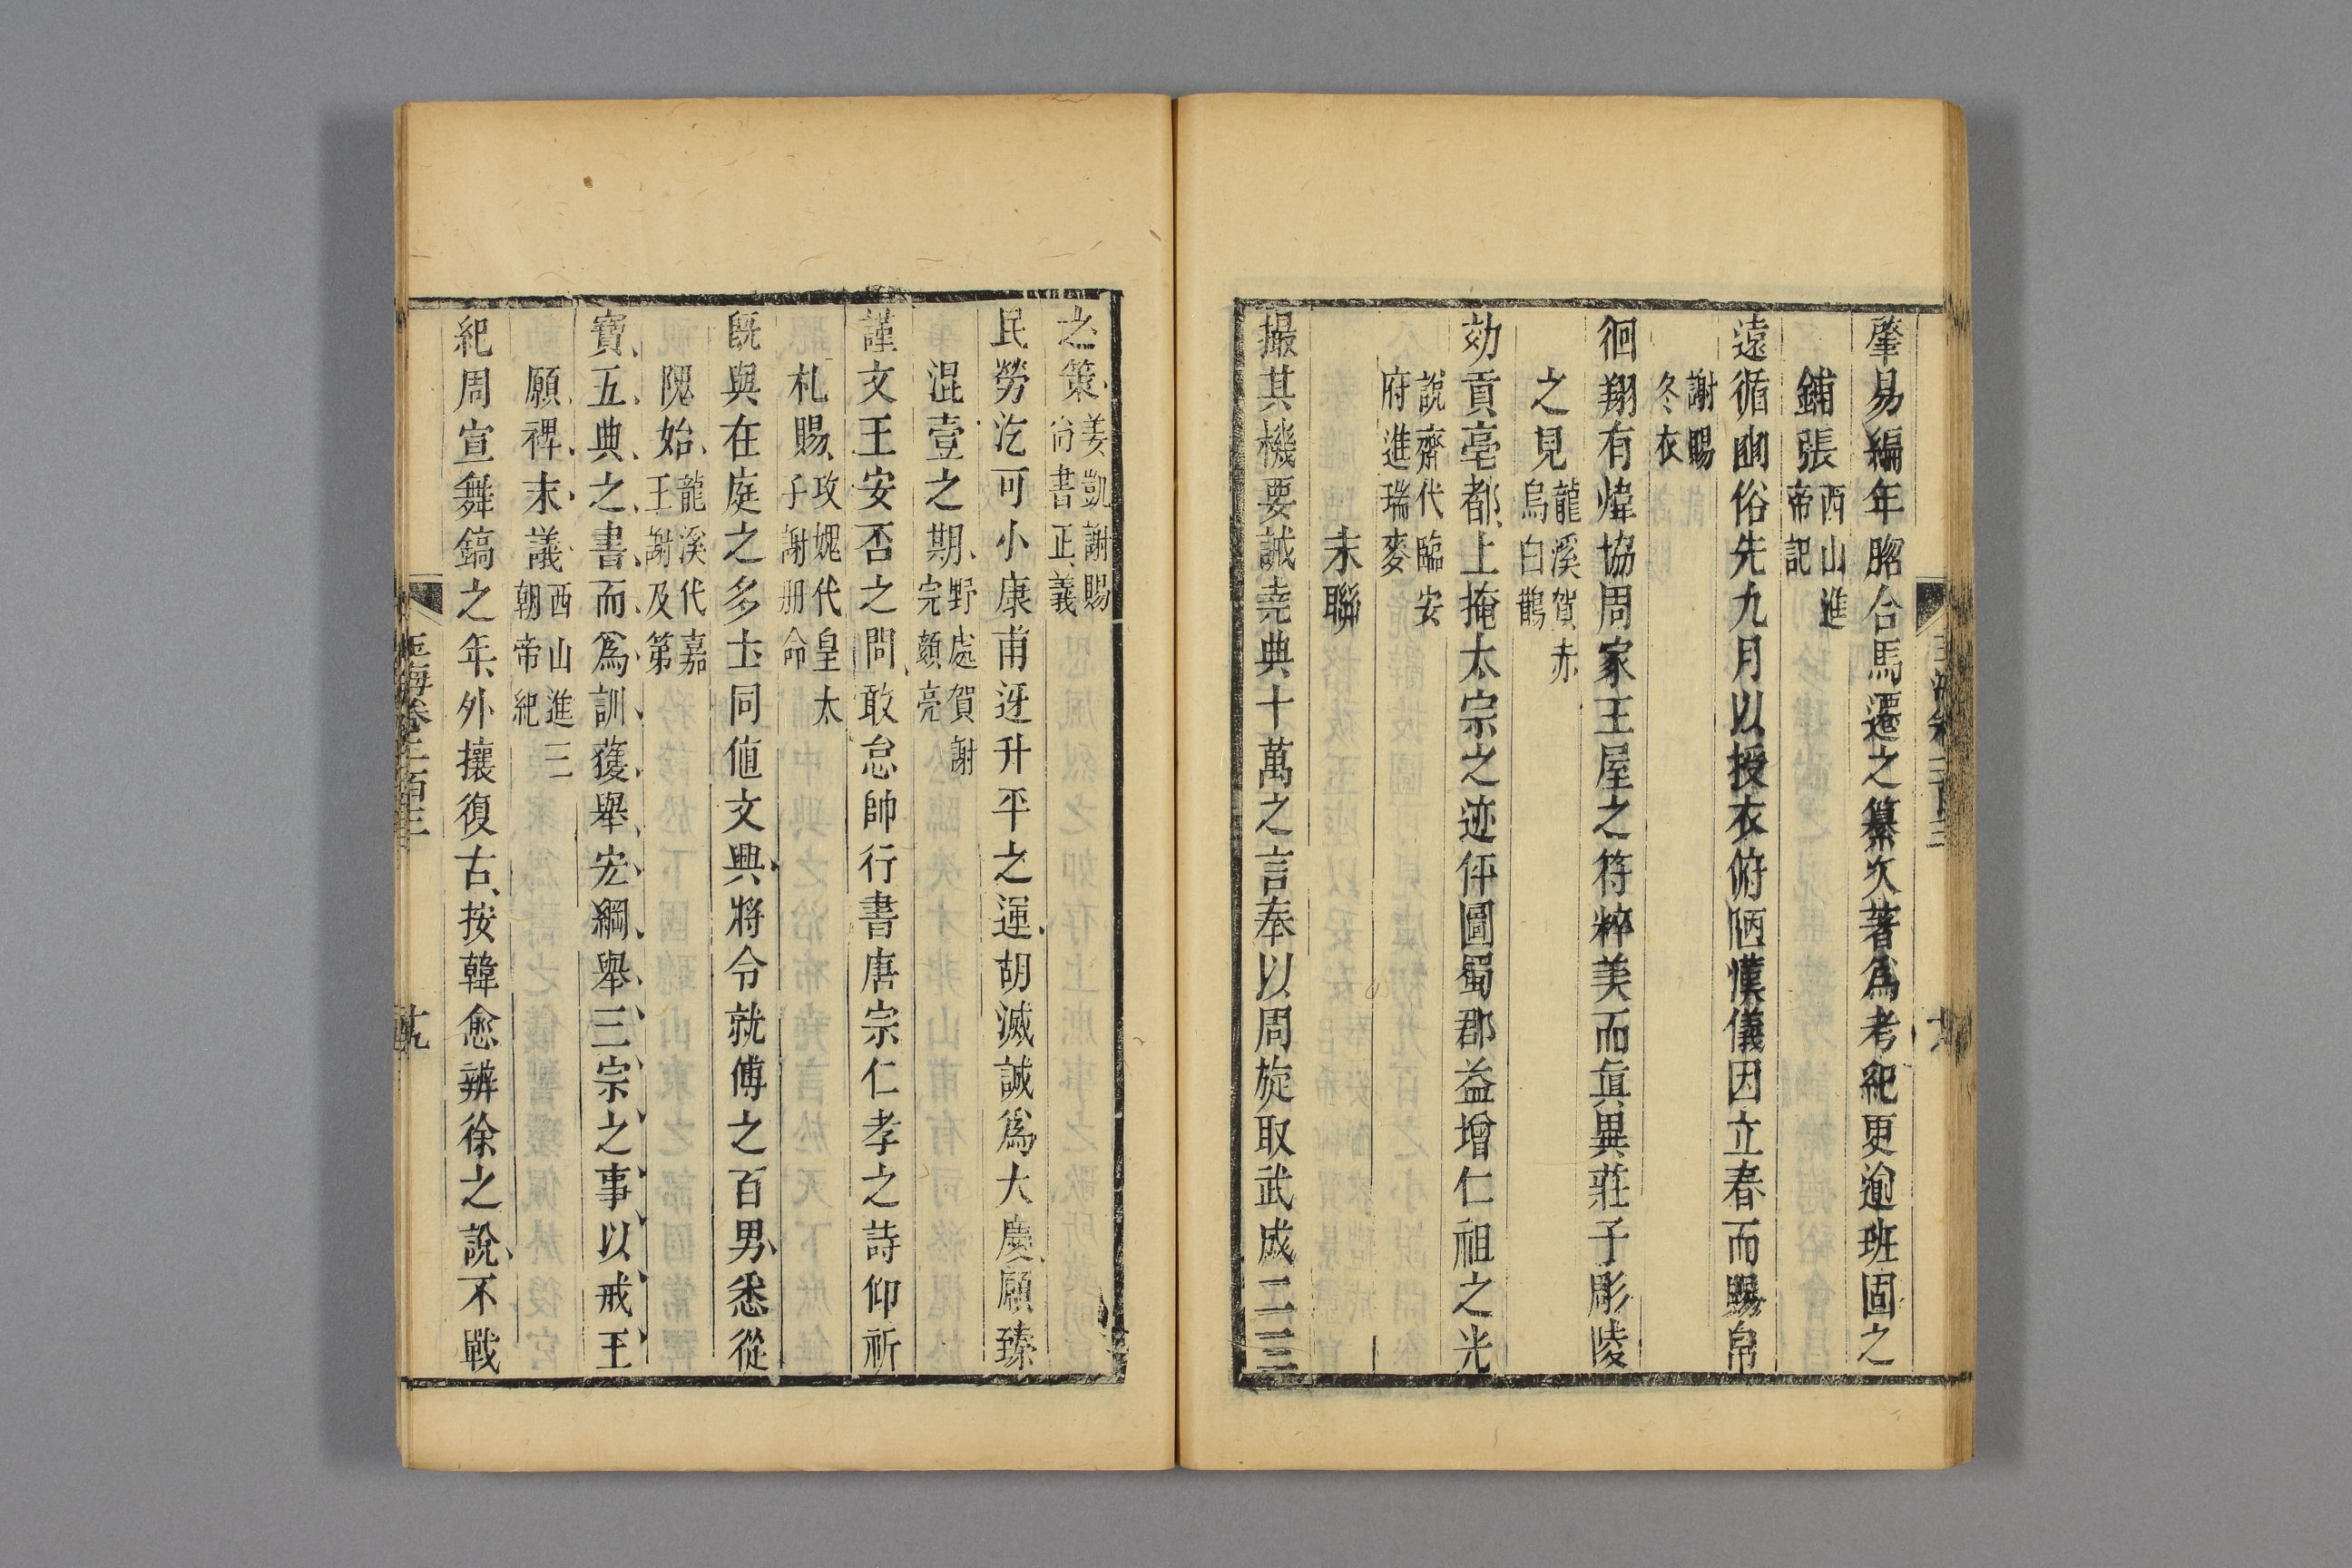 肇易編年脗合馬遷之纂次著爲考紀更逾班固之
鋪張西山進帝記
遠循豳俗先九月以授衣俯陋漢儀因立春而賜帛
謝賜冬衣
徊翔有煒協周家王屋之符粹美而眞異莊子彫陵
之見龍溪賀赤烏白鵲
効貢亳都上掩太宗之迹伻圖蜀郡益增仁祖之光
說齋代臨安府進瑞麥
末聯
撮其機要誠堯典十萬之言奉以周旋取武成二三
之策姜凱謝賜尚書正義
民勞汔可小康甫迓升平之運胡滅誠爲大慶願臻
混壹之期野處賀謝完顏亮
謹文王安否之問敢怠帥行書唐宗仁孝之詩仰祈
札賜攻媿代皇太子謝册命
既與在庭之多士同値文興將令就傅之百男悉從
隗始龍溪代嘉王謝及第
寶五典之書而爲訓蔓舉宏綱舉三宗之事以戒王
願裨末議西山進三朝帝紀
紀周宣舞鎬之年外攘復古按韓愈辨徐之說不戰
玉海卷二百三
十九